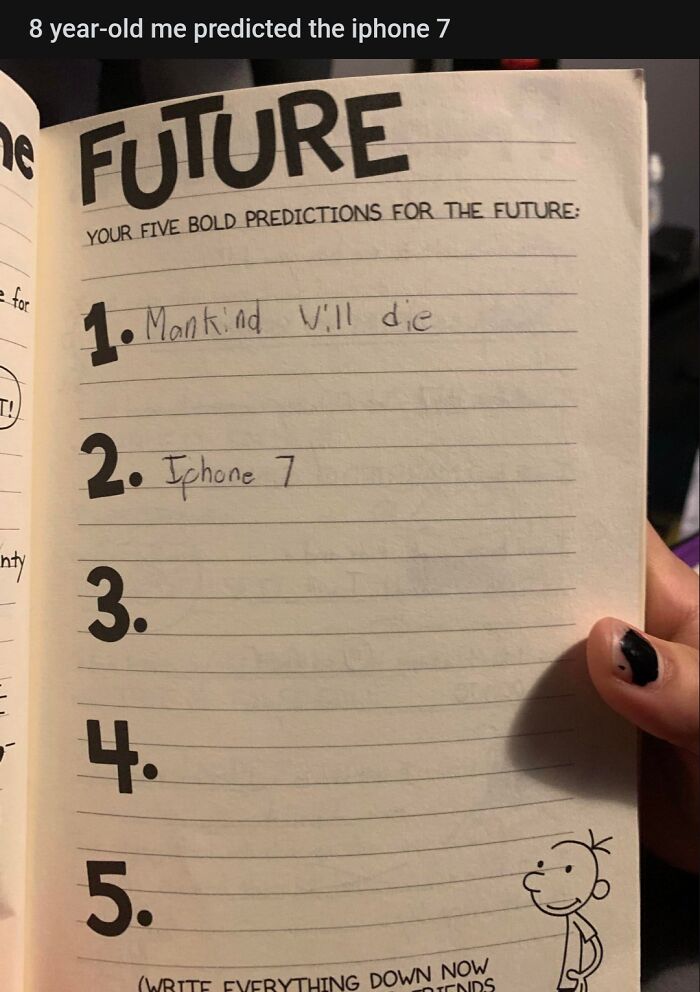 8 year-old me predicted the iphone 7
FUTURE
YOUR FIVE BOLD PREDICTIONS FOR THE FUTURE:
1. Mankind Will die
2. Iphone 7
3.
4.
5.
(WRITE EVERYTHING DOWN NOW
ne
e for
T!
nty